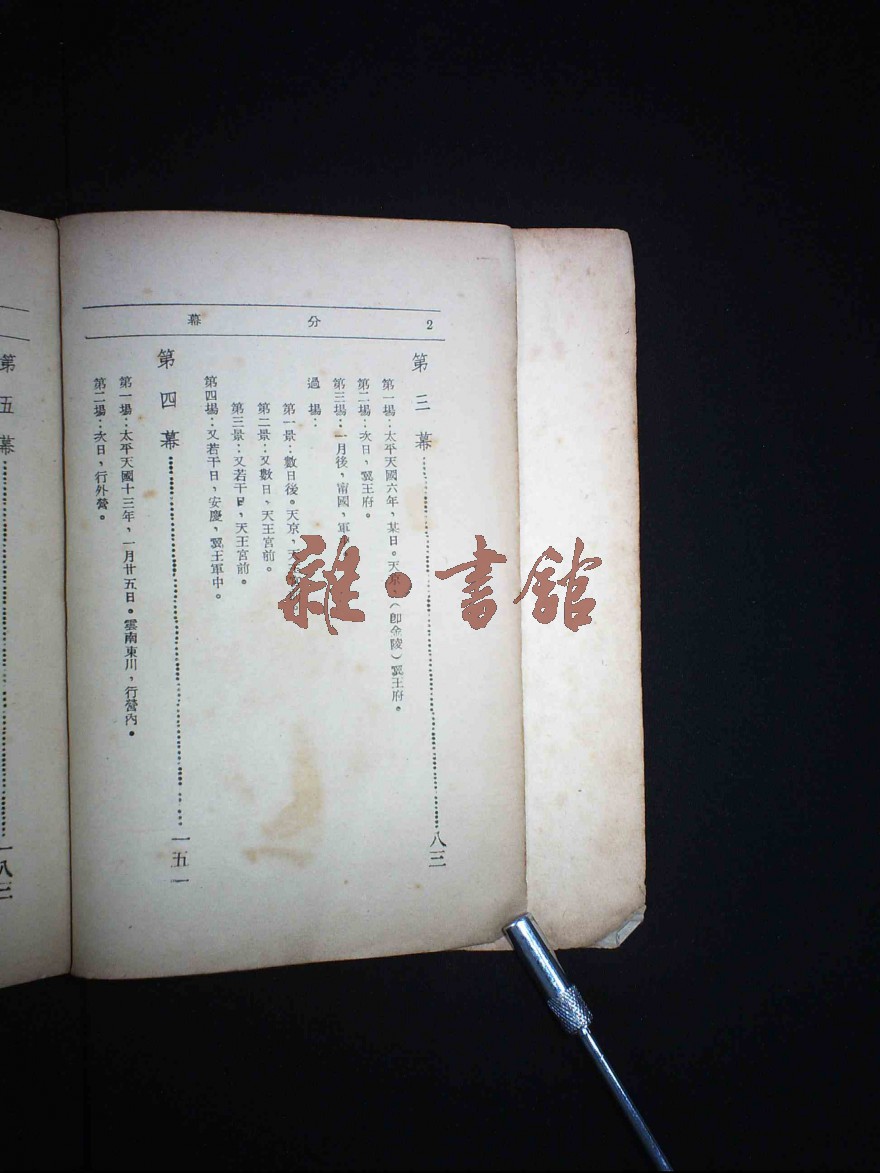 2　分　幕
第三幕……八三
第一場：太平天國六年，某日。天京，（卽金陵）翼王府。
第二場：次日，翼王府。
第三場：一月後，甯國，軍
過場：
第一景：數日後。天京，天
第二景：又數日，天王宮前。
第三景：又若干日，天王宮前。
第四場：又若干日，安慶，翼王軍中。
第四幕……一五一
第一場：太平天國十三年，一月廿五日。雲南東川，行營內。
第二場：次日，行外營。
第五幕……一八三
雜·書館